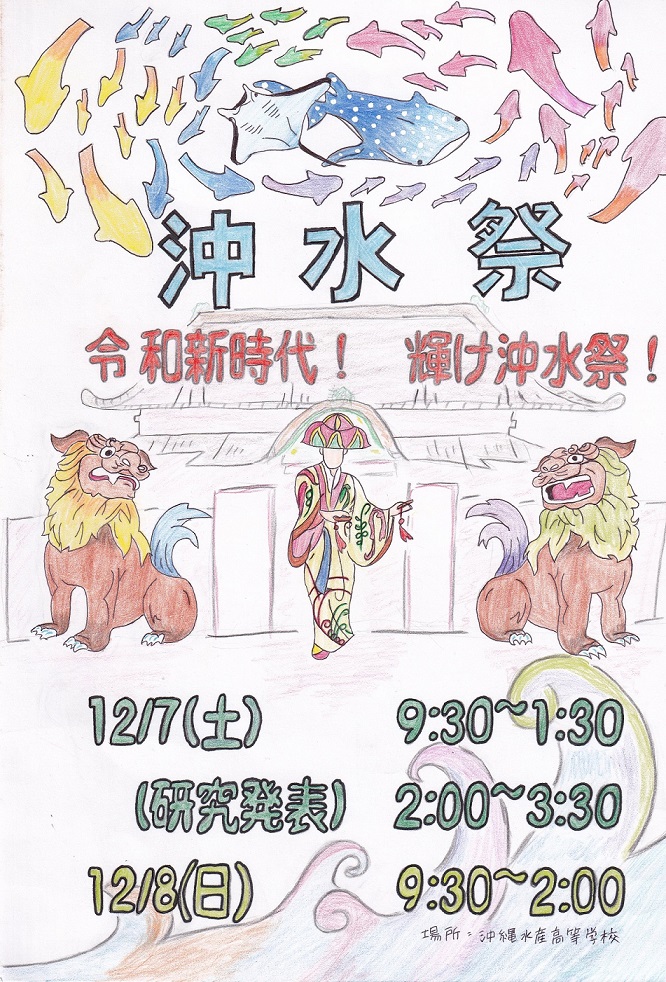 沖水祭
令和新時代！ 輝け沖水祭！
12/7(土) 9:30~1:30
(研究発表) 2:00~3:30
12/8(日) 9:30~2:00
場所：沖縄水産高等学校